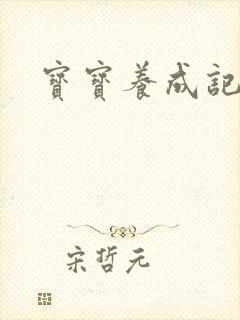 寶寶養成記
宋哲元